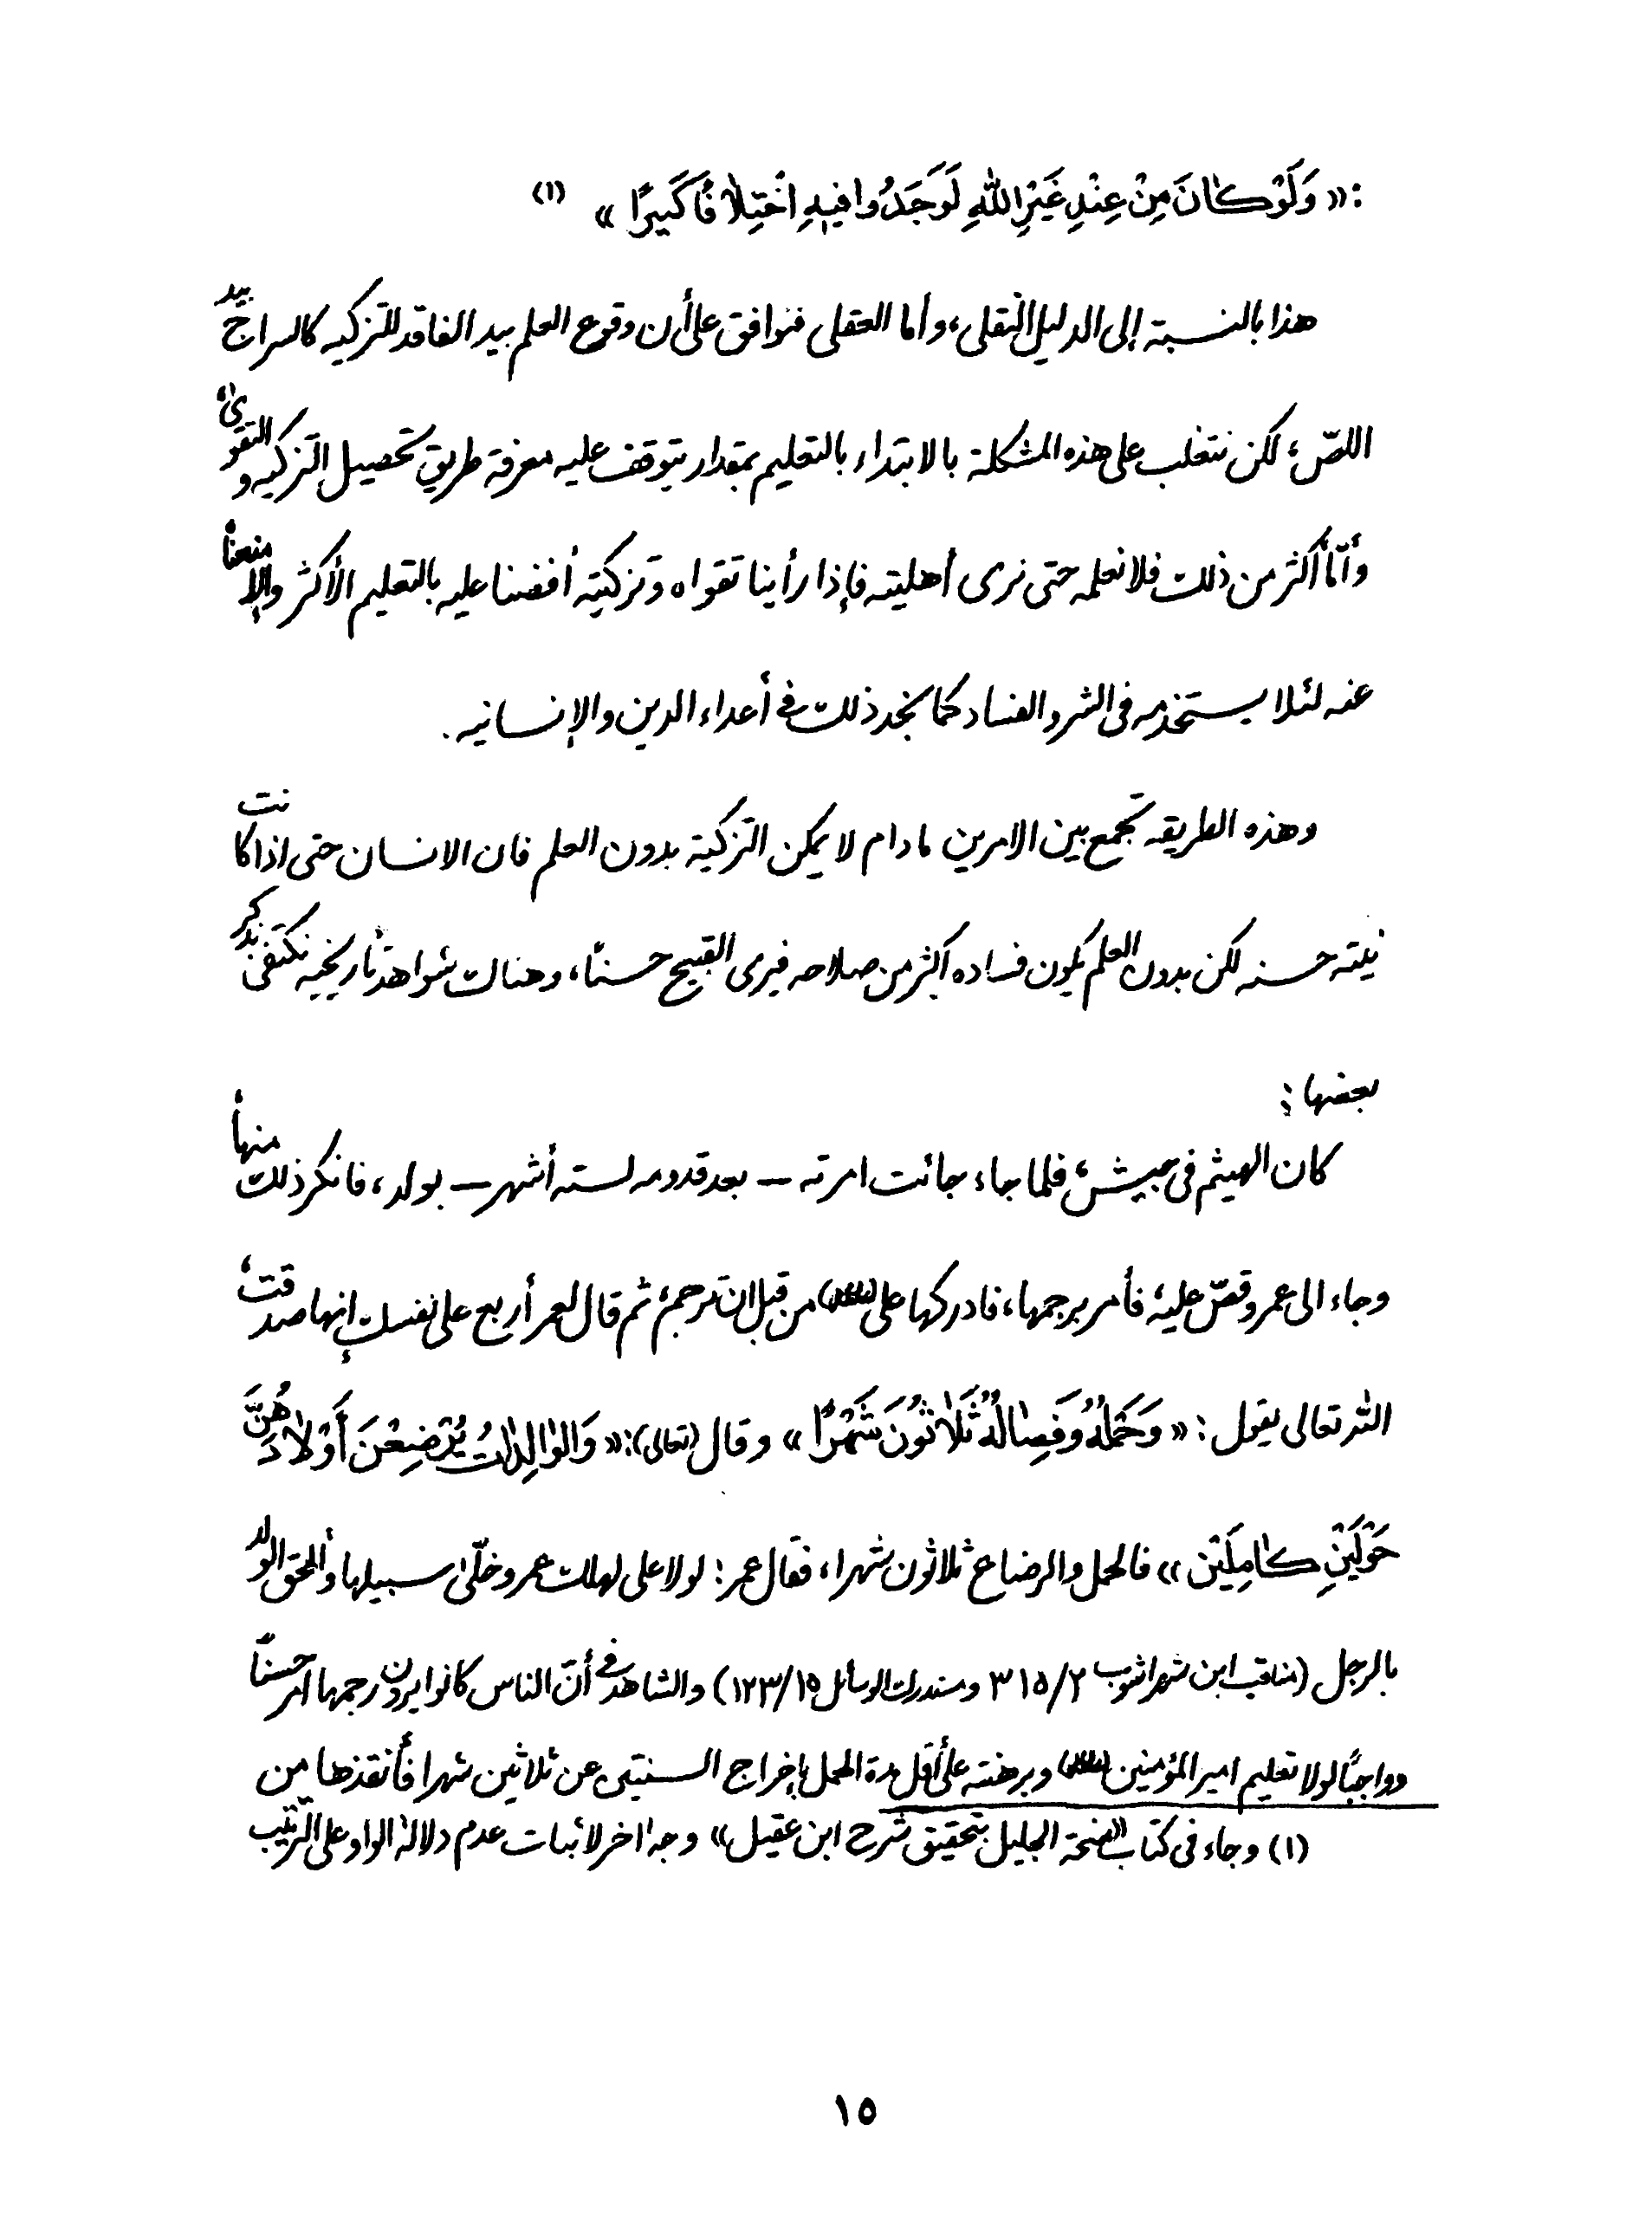 : « وَلَوْ كَانَ مِنْ عِنْدِ غَيْرِ اللَّهِ لَوَجَدُوا فِيهِ اخْتِلَافًا كَثِيرًا » (١)
هذا بالنسبة إلى الدليل النقلى، وأما العقلى فنوافق على أن وقوع العلم بيد الفاقد للتزكيه كالسراج بيد
اللصّ، لكن نتغلب على هذه المشكلة بالابتداء بالتعليم بمقدار يتوقف عليه معرفة طريق تحصيل التزكيه والتقوىٰ،
وأمّا أكثر من ذلك فلا نعلمه حتى نرى أهليته فإذا رأينا تقواه وتزكيته أفضنا عليه بالتعليم الأكثر وإلا منعنا
عنه لئلا يستخدمه فى الشر والفساد كما نجد ذلك في أعداء الدين والإنسانيه .
وهذه الطريقه تجمع بين الامرين مادام لا يمكن التزكية بدون العلم فان الانسان حتى اذا كانت
نيته حسنه لكن بدون العلم يكون فساده أكثر من صلاحه فيرى القبيح حسنًا، وهناك شواهد تأريخيه نكتفى بذكر
بعضها :
كان الهيثم فى جيش، فلما جاء جائت امرته – بعد قدومه لسته أشهر – بولد، فانكر ذلك منها،
وجاء الى عمر وقصّ عليه، فأمر برجمها، فادركها على (علیه‌السلام) من قبل ان ترجم، ثم قال لعمر أربع على نفسك إنها صدقت،
الله تعالى يقول : « وَحَمْلُهُ وَفِصَالُهُ ثَلَاثُونَ شَهْرًا » وقال (تعالى): « وَالْوَالِدَاتُ يُرْضِعْنَ أَوْلَادَهُنَّ
حَوْلَيْنِ كَامِلَيْنِ » فالحمل والرضاع ثلاثون شهرا، فقال عمر : لولا على لهلك عمر وخلّىٰ سبيلها وألحق الولد
بالرجل (مناقب ابن شهراشوب ٢/ ٣١٥ ومستدرك الوسائل ١٥/ ١٢٣) والشاهد في أنّ الناس كانوا يرون رجمها امر حسنًا
وواجبًا لولا تعليم امير المؤمنين (علیه‌السلام) وبرهنته على أقل مدة الحمل بإخراج السنتين عن ثلاثين شهرا فأنقذها من
(١) وجاء فى كتاب «منحة الجليل بتحقيق شرح ابن عقيل» وجه اخر لاثبات عدم دلالة الواو على الترتيب
١٥